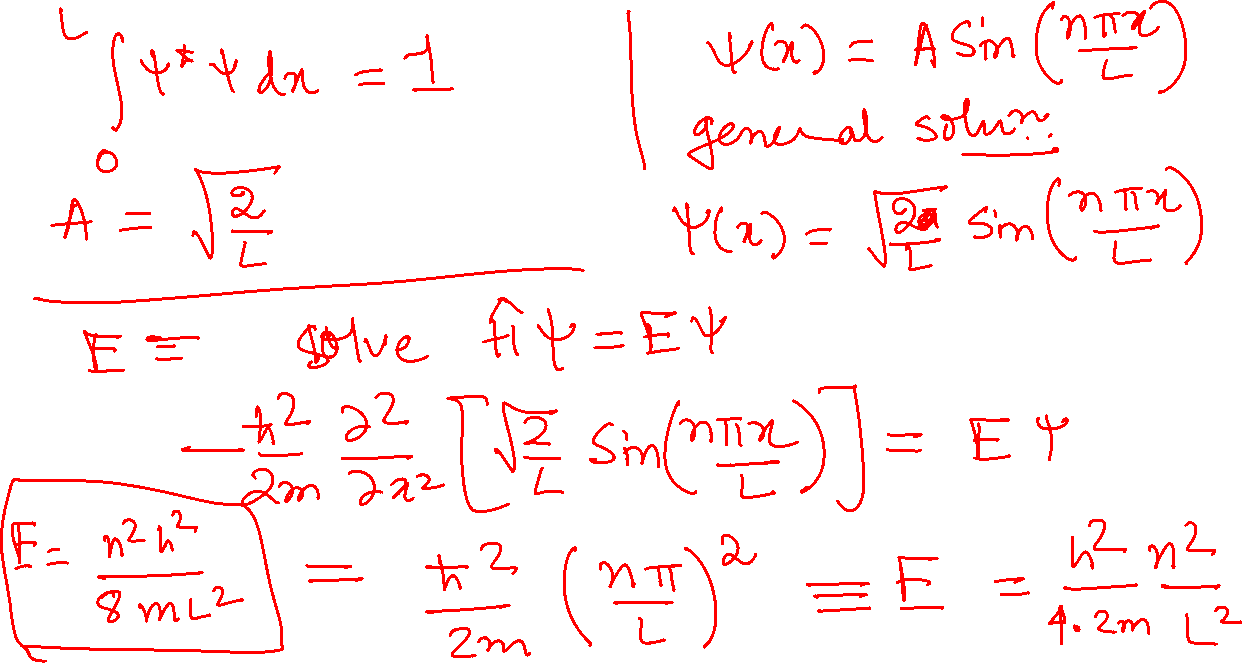 ∫₀ᴸ ψ* ψ dx = 1
A = √(2/L)
ψ(x) = A Sin (nπx/L)
general solun.
Ψ(x) = √(2/L) Sin (nπx/L)
E = solve Ĥψ = Eψ
-ħ²/2m ∂²/∂x² [√(2/L) Sin(nπx/L)] = Eψ
= ħ²/2m (nπ/L)² ≡ E = h²/4.2m n²/L²
E = n²h²/8mL²